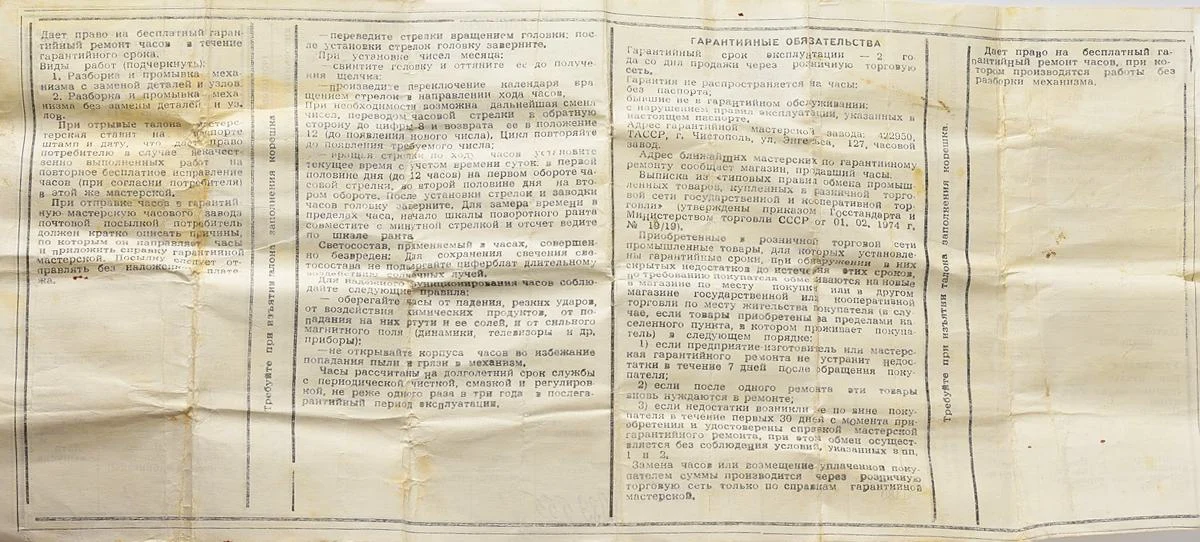 Дает право на бесплатный гаран-
тийный ремонт часов в течение
гарантийного срока.
Виды работ (подчеркнуть):
1. Разборка и промывка меха-
низма с заменой деталей и узлов
2. Разборка и промывка меха-
низма без замены деталей и уз.
лов.
При отрывые талона мастерс-
терская ставит на паспорте
штамп и дату, что дает право
потребителю в случае некачест-
венно выполненных работ на
повторное бесплатное исправление
часов (при согласии потребителя)
в этой же мастерской.
При отправке часов в гарантий
ную мастерскую часового завода
почтовой посылкой потребитель
должен кратко описать причины,
по которым он направляет часы
и приложить справку гарантийной
мастерской. Посылку следует от-
правлять без наложенного плате-
жа.
Требуйте при изъятии талона заполнения корешка
—переведите стрелки вращением головки; пос-
ле установки стрелок головку заверните.
При установке чисел месяца:
—свинтите головку и оттяните ее до получе-
ния щелчка;
—произведите переключение календаря вра
щением стрелок в направлении хода часов,
При необходимости возможна дальнейшая смена
чисел, переводом часовой стрелки в обратную
сторону до цифры 8 и возврата ее в положение
12 (до появления нового числа). Цикл повторяйте
до появления требуемого числа;
—вращая стрелки по ходу часов установите
текущее время с учетом времени суток: в первой
половине дня (до 12 часов) на первом обороте ча-
совой стрелки, во второй половине дня на вто-
ром обороте. После установки стрелок и заводки
часов головку заверните. Для замера времени в
пределах часа, начало шкалы поворотного ранта
совместите с минутной стрелкой и отсчет ведите
по шкале ранта
Светосостав, применяемый в часах, совершен-
но безвреден. Для сохранения свечения све-
тосостава не подвергайте циферблат длительному
воздействию солнечных лучей.
Для надежного функционирования часов соблю-
дайте следующие правила:
— оберегайте часы от падения, резких ударов,
от воздействия химических продуктов, от по-
падания на них ртути и ее солей, и от сильного
магнитного поля (динамики, телевизоры и др,
приборы);
—не открывайте корпуса часов во избежание
попадания пыли и грязи в механизм.
Часы рассчитаны на долголетний срок службы
с периодической чисткой, смазкой и регулиров-
кой, не реже одного раза в три года в послега-
рантийный период эксплуатации.
ГАРАНТИЙНЫЕ ОБЯЗАТЕЛЬСТВА
Гарантийный срок эксплуатации — 2 го-
да со дня продажи через розничную торговую
сеть.
Гарантия не распространяется на часы:
без паспорта;
бывшие не в гарантийном обслуживании;
с нарушением правил эксплуатации, указанных в
настоящем паспорте.
Адрес гарантийной мастерской завода: 422950,
ТАССР, г. Чистополь, ул. Энгельса, 127, часовой
завод.
Адрес ближайщих мастерских по гарантийному
ремонту сообщает магазин, продавший часы.
Выписка из «типовых правил обмена промыш-
ленных товаров, купленных в розничной торго-
вой сети государственной и кооперативной тор-
говли» (утверждены приказом Госстандарта и
Министерством торговли СССР от 01. 02. 1974 г.
№ 19/19).
Приобретенные в розничной торговой сети
промышленные товары, для которых установле-
ны гарантийные сроки, при обнаружении в них
скрытых недостатков до истечения этих сроков,
по требованию покупателя обмениваются на новые
в магазине по месту покупки или в другом
магазине государственной или кооперативной
торговли по месту жительства покупателя (в слу-
чае, если товары приобретены за пределами на-
селенного пункта, в котором проживает покупа-
тель) в следующем порядке:
1) если предприятие-изготовитель или мастерс-
кая гарантийного ремонта не устранит недос-
татки в течение 7 дней после обращения поку-
пателя;
2) если после одного ремонта эти товары
вновь нуждаются в ремонте;
3) если недостатки возникли не по вине поку-
пателя в течение первых 30 дней с момента при-
обретения и удостоверены справкой мастерской
гарантийного ремонта, при этом обмен осущест-
вляется без соблюдения условий, указанных в пп.
1 и 2.
Замена часов или возмещение уплаченной поку-
пателем суммы производится через розничную
торговую сеть только по справкам гарантийной
мастерской.
Требуйте при изъятии талона заполнения корешка.
Дает право на бесплатный га-
рантийный ремонт часов, при ко-
тором производятся работы без
разборки механизма.